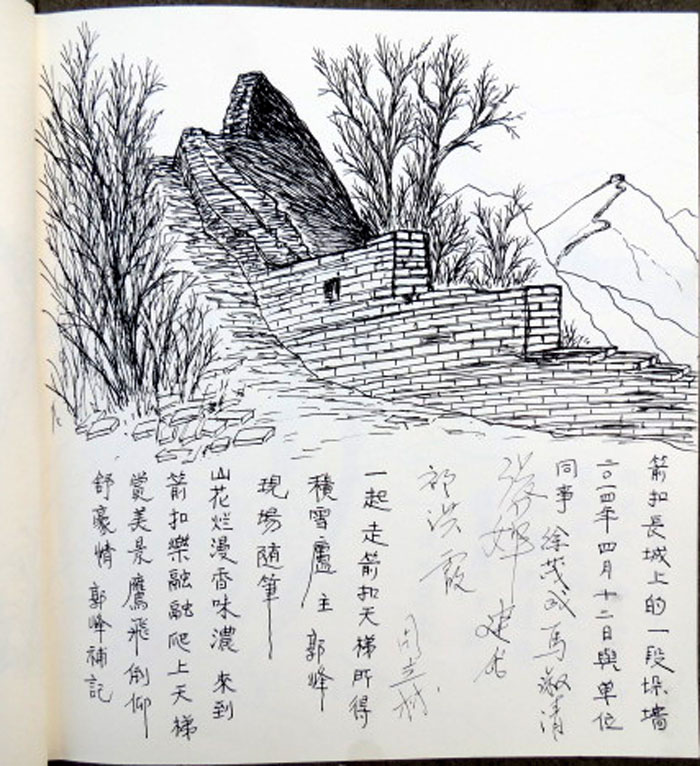 箭扣長城上的一段垛墙
二〇一四年四月十二日與單位
同事 徐茂成 馬淑清
祁洪霞
一起走箭扣天梯所得
積雪廬主 郭峰
現場随筆
山花烂漫香味濃 來到
箭扣樂融融爬上天梯
赏美景鷹飛倒仰
舒豪情 郭峰補記